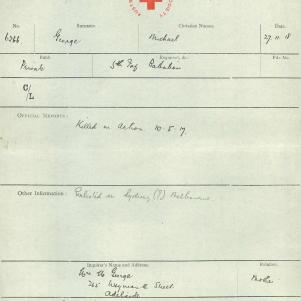 No. Surname. Christian Names. Date.
6366 George Michael 27.11.18
Rank. Regiment, &c. File No.
Private 5th Inf Battalion
O/L
OFFICIAL REPORTS:
Killed in Action 10-5-17.
Other Information: Enlisted in Sydney (?) Melbourne
Inquirer's Name and Address. Relation.
George Mother
Street
Adelaide